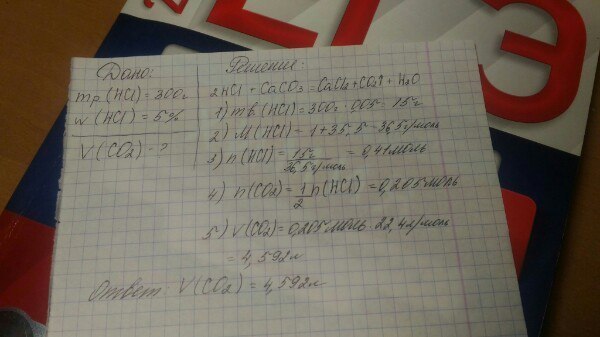 Дано:
mр(HCl)=300г
w(HCl)=5%
V(CO2)-?
Решение:
2HCl + CaCO3 = CaCl2 + CO2↑ + H2O
1) mв(HCl)=300г·005=15г
2) M(HCl)=1+35,5=36,5г/моль
3) n(HCl)=15г/36,5г/моль=0,41моль
4) n(CO2)=1/2n(HCl)=0,205моль
5) V(CO2)=0,205моль·22,4л/моль
=4,592л
Ответ: V(CO2)=4,592л
ЕГЭ
2